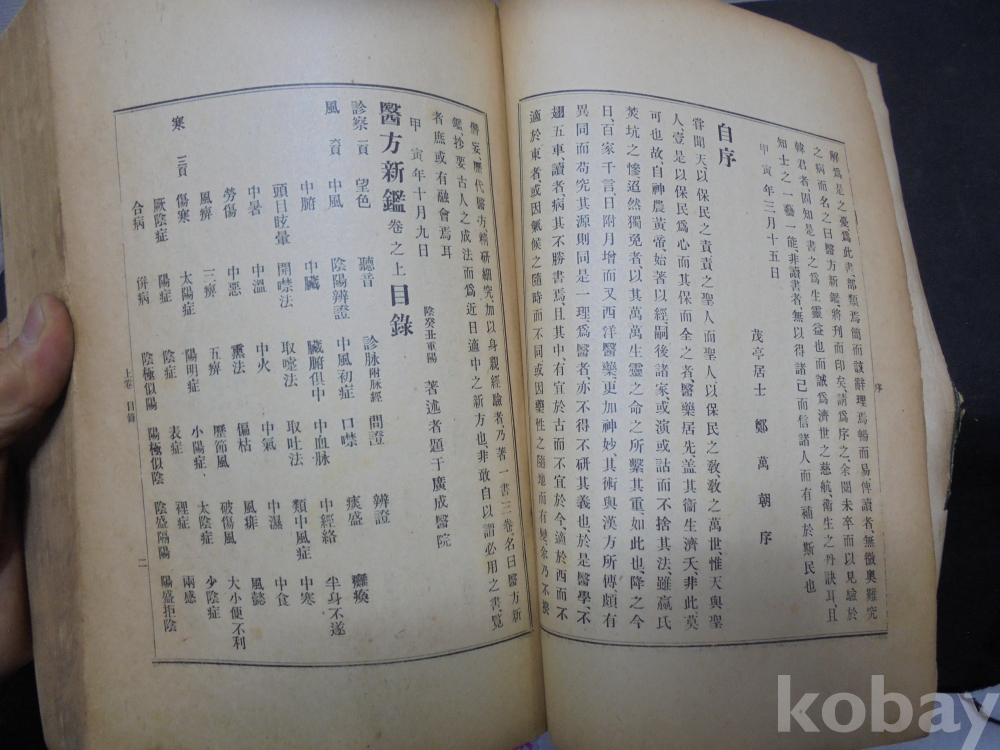 解爲是之憂爲此書、部類焉簡而該辭理焉暢而易俾讀者無微奧難究
之病而名之曰醫方新鑑將刋而印矣、請爲序之、余閱未卒而以見驗於
韓君者、固知是書之爲生靈益也而誠爲濟世之慈航、衛生之丹訣耳、且
知士之一藝一能、非讀書者、無以得諸己而信諸人而有補於斯民也
甲寅年三月十五日
茂亭居士 鄭萬朝 序
自序
甞聞天以保民之責責之聖人而聖人以保民之敎敎之萬世、惟天與聖
人、壹是以保民爲心而其保而全之者、醫藥居先盖其衛生濟夭、非此莫
可也故、自神農黃帝始著以經嗣後諸家或演或詁而不捨其法、雖嬴氏
焚坑之慘迢然獨免者以其萬萬生靈之命之所繫其重、如此也、降之今
日、百家千言日附月增而又西洋醫藥更加神妙、其術與漢方所傳、頗有
異同而苟究其源則同是一理爲醫者亦不得不研其義也、於是醫學、不
翅五車讀者病其不勝書焉、且其中、有宜於古而不宜於今、適於西而不
適於東者或因氣候之隨時而不同或因藥性之隨地而有變、余乃不揆
僭妄、歷代醫方精研細究、加以身親經驗者、乃著一書三卷、名曰醫方新
鑑、抄要古人之成法而爲近日適中之新方也、非敢自以謂必用之書、覽
者庶或有融會焉耳
甲寅年十月九日
陰癸丑重陽 著述者題于廣成醫院
醫方新鑑 卷之上 目錄
診察 一頁 望色 聽音 診脉附脉經 問證 辨證
風 中風 陰陽辨證 中風初症 口噤 痰盛 癱瘓
中腑 中臟 臟腑俱中 中血脉 中經絡 半身不遂
頭目眩暈 開噤法 取嚏法 取吐法 類中風症 中寒
中暑 中溫 中火 中氣 中濕 中食
勞傷 中惡 熏法 偏枯 風痱 風懿
風痺 三痺 五痺 歷節風 破傷風 大小便不利
寒 三頁 傷寒 太陽症 陽明症 小陽症 太陰症 少陰症
厥陰症 陽症 陰症 表症 裡症 兩感
合病 併病 陰極似陽 陽極似陰 陰盛隔陽 陽盛拒陰
序
上卷 目錄
二
kobay